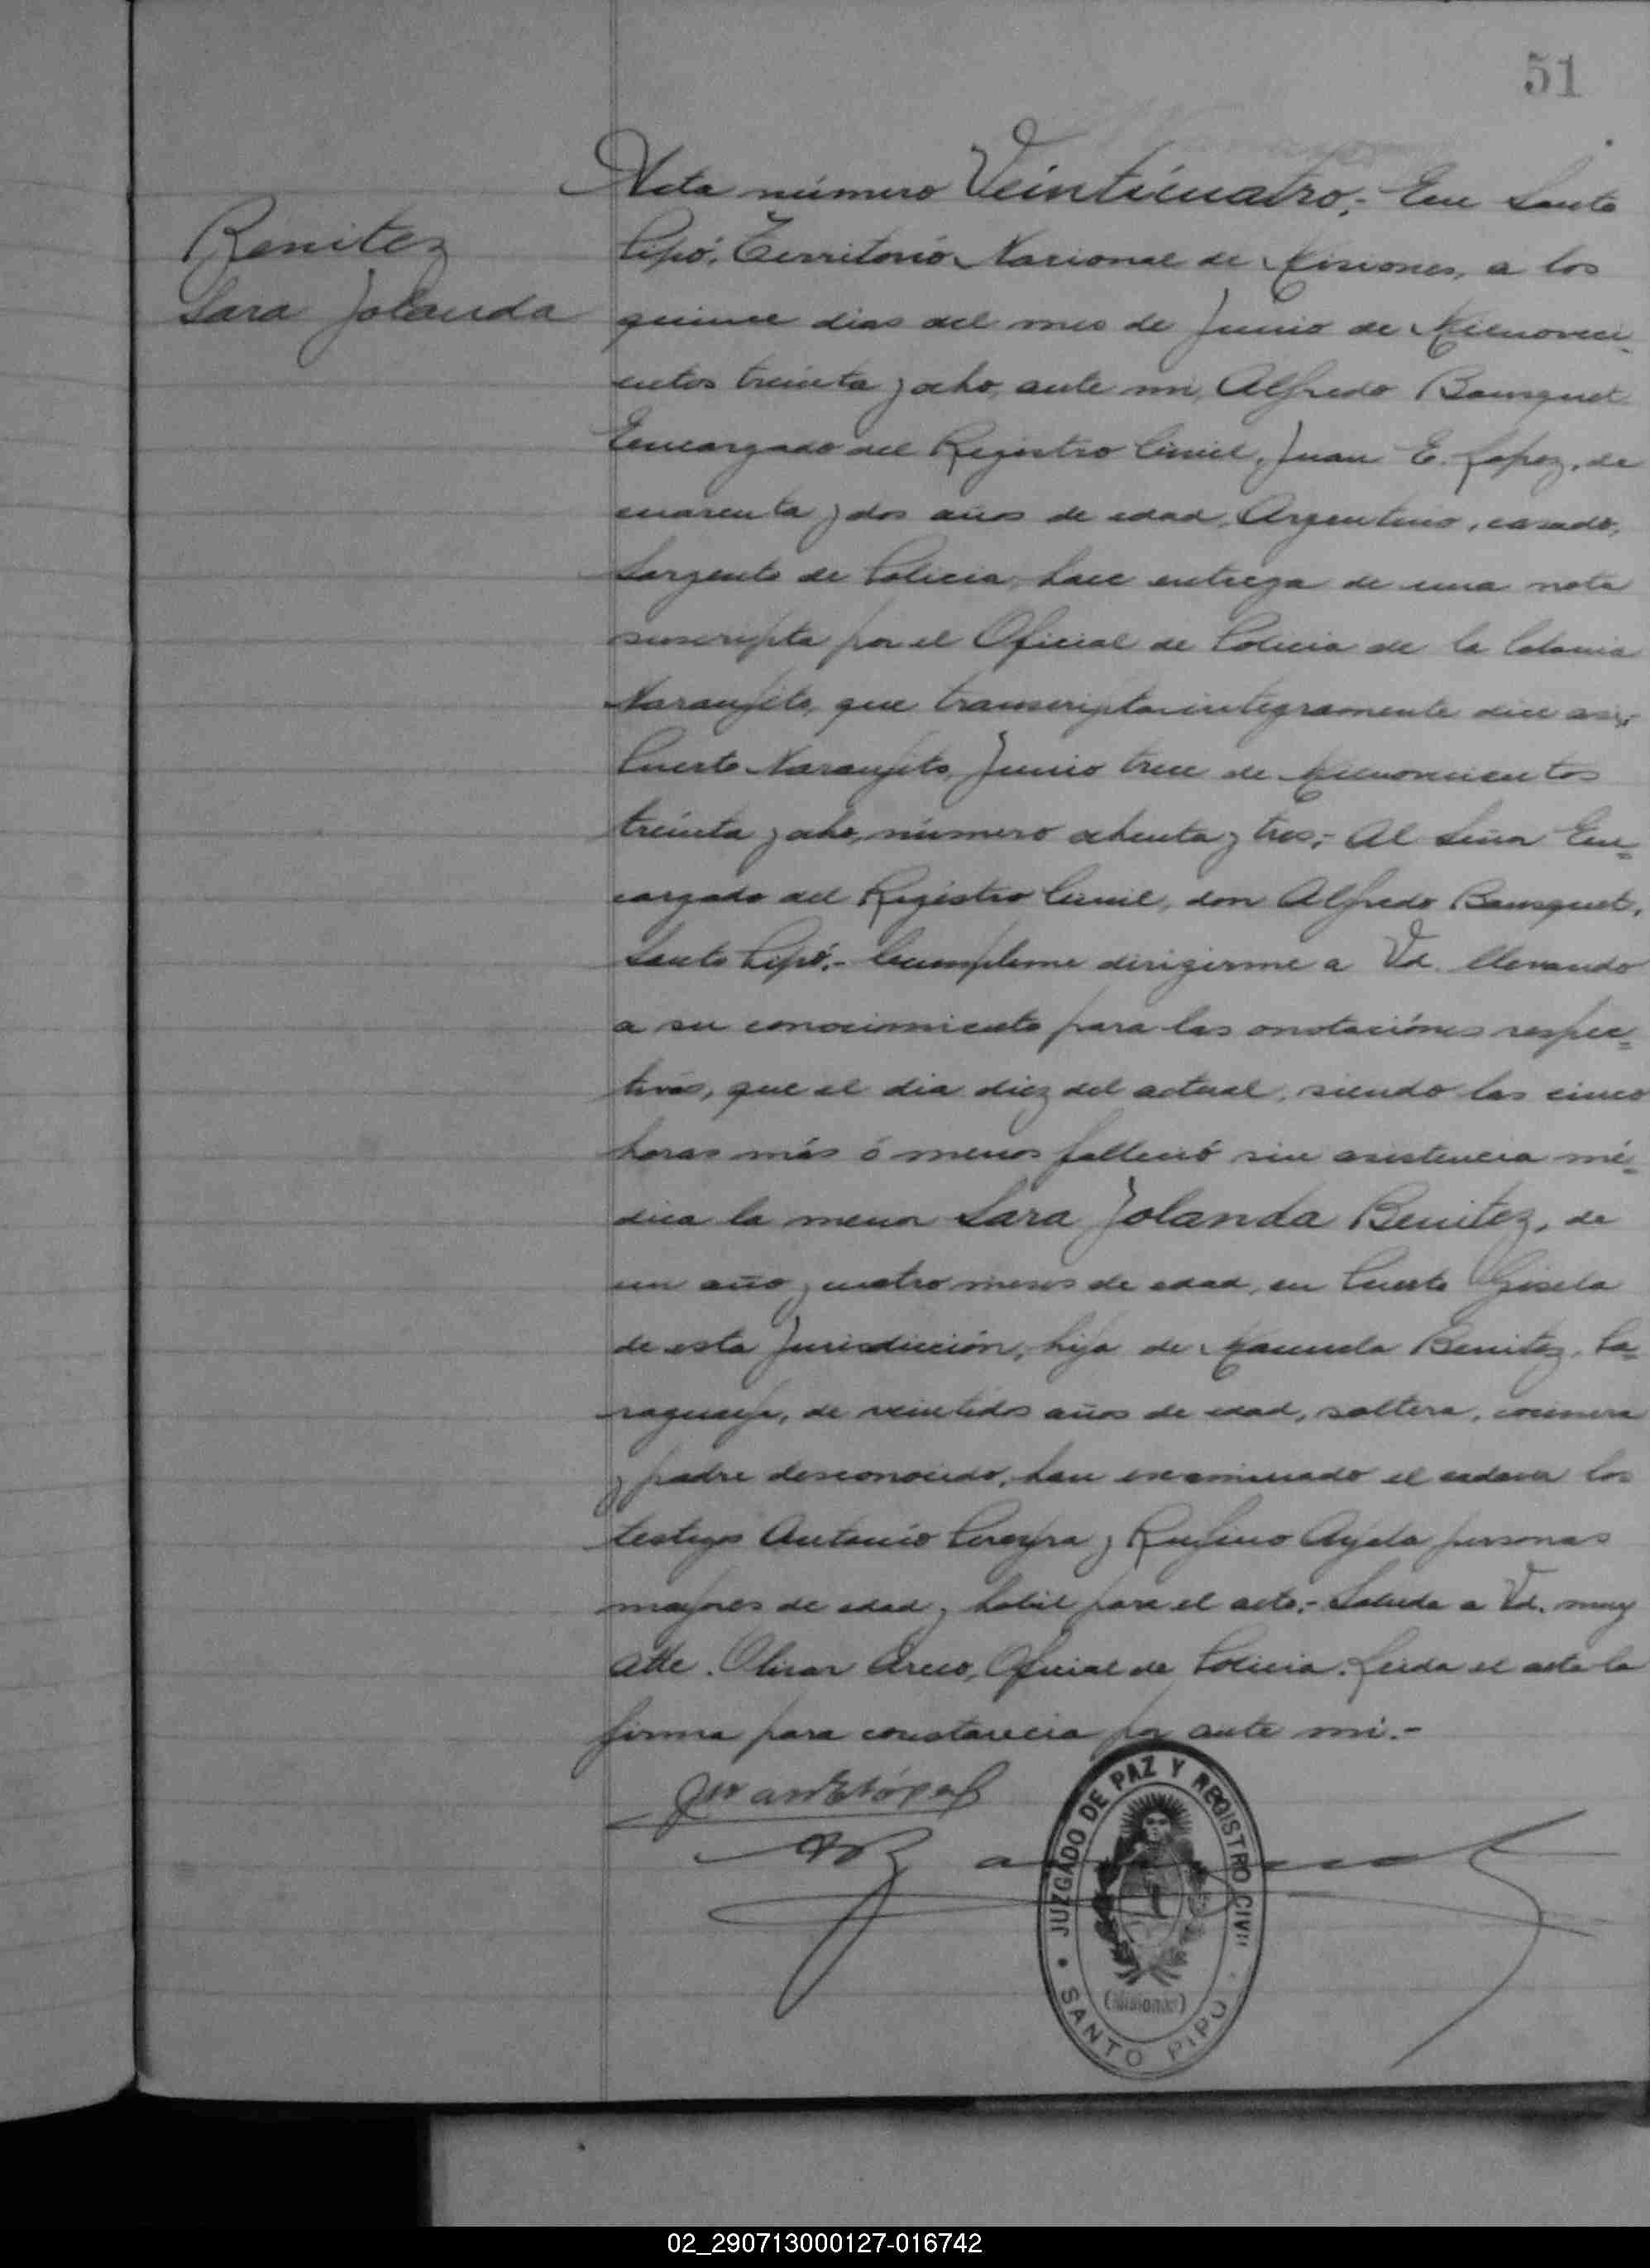 51
Benitez
Sara Jolanda
Acta número Veinticuatro.- En Santo
Pipó, Territorio Nacional de Misiones, a los
quince dias del mes de Junio de Milnoveci-
entos treinta y ocho, ante mi, Alfredo Bousquet
Encargado del Registro Civil, Juan E. Lopez, de
cuarenta y dos años de edad, Argentino, casado,
Sargento de Policia, hace entrega de una nota
suscripta por el Oficial de Policia de la Colonia
Naranjito, que transcripta integramente dice asi:-
Puerto Naranjito, Junio trece de Milnovecientos
treinta y ocho, número ochenta y tres.- Al Señor En=
cargado del Registro Civil, don Alfredo Bousquet,
Santo Pipó.- Cumpleme dirigirme a Vd. llevando
a su conocimiento para las anotaciónes respec=
tivas, que el dia diez del actual, siendo las cinco
horas más ó menos falleció sin asistencia mé=
dica la menor Sara Jolanda Benitez, de
un año y cuatro meses de edad, en Puerto Gisela
de esta Jurisdicción, hija de Manuela Benitez, Pa=
raguaya, de veintidos años de edad, soltera, cocinera
y padre desconocido, han examinado el cadaver los
testigos Antonio Pereyra y Rufino Ayala personas
mayores de edad y habil para el acto.- Saluda a Vd. muy
atte. Areco, Oficial de Policia. Leida el acta la
firma para constancia por ante mi.-
Juan E López
JUZGADO DE PAZ Y REGISTRO CIVIL
(Misiones)
SANTO PIPO
02_290713000127-016742